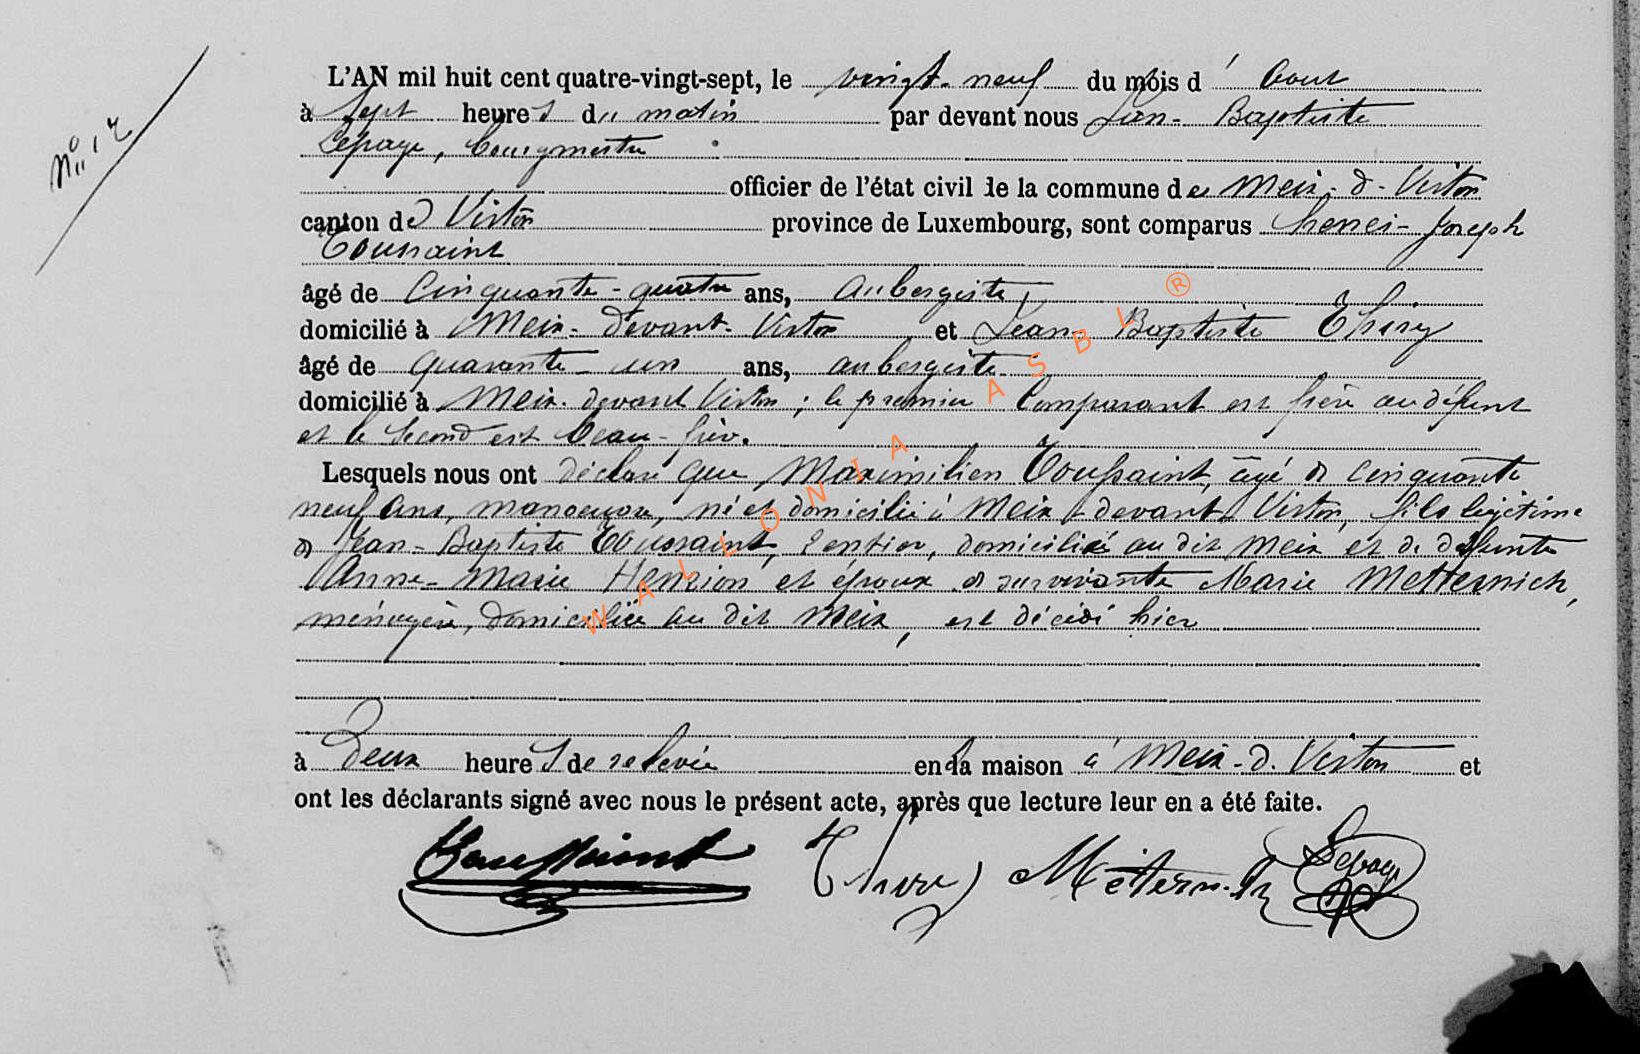 N° 12
L'AN mil huit cent quatre-vingt-sept, le vingt-neuf du mois d'Aout
à sept heures du matin par devant nous Jean-Baptiste
Lepage, bourgmestre
officier de l'état civil de la commune de Meix-d-Virton
canton de Virton province de Luxembourg, sont comparus henri-Joseph
Toussaint
âgé de Cinquante-quatre ans, aubergiste,
domicilié à Meix-devant-Virton et Jean-Baptiste Thiry
âgé de quarante-un ans, aubergiste
domicilié à Meix-devant Virton ; le premier Comparant est frère au défunt
et le second est beau-frère.
Lesquels nous ont déclaré que Maximilien Toussaint, âgé de cinquante
neuf ans, manoeuvre, né et domicilié à Meix-devant-Virton, fils légitime
de Jean-Baptiste Toussaint, rentier, domicilié au dit Meix et de défunte
Anne-Marie Henrion et époux de survivante Marie Metternich,
ménagère, domiciliée au dit Meix, est décédé hier
à deux heures de relevée en la maison à Meix-d-Virton et
ont les déclarants signé avec nous le présent acte, après que lecture leur en a été faite.
Toussaint Thiry Metternich Lepage
WALLONIA ASBL ®